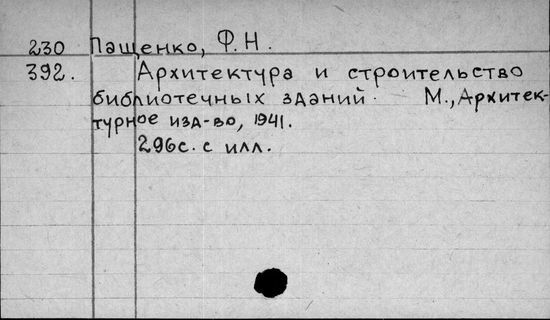 230 Пащенко, Ф.Н.
392. Архитектура и строительство
библиотечных зданий. М., Архитек-
турное изд-во, 1941.
296с. с илл.